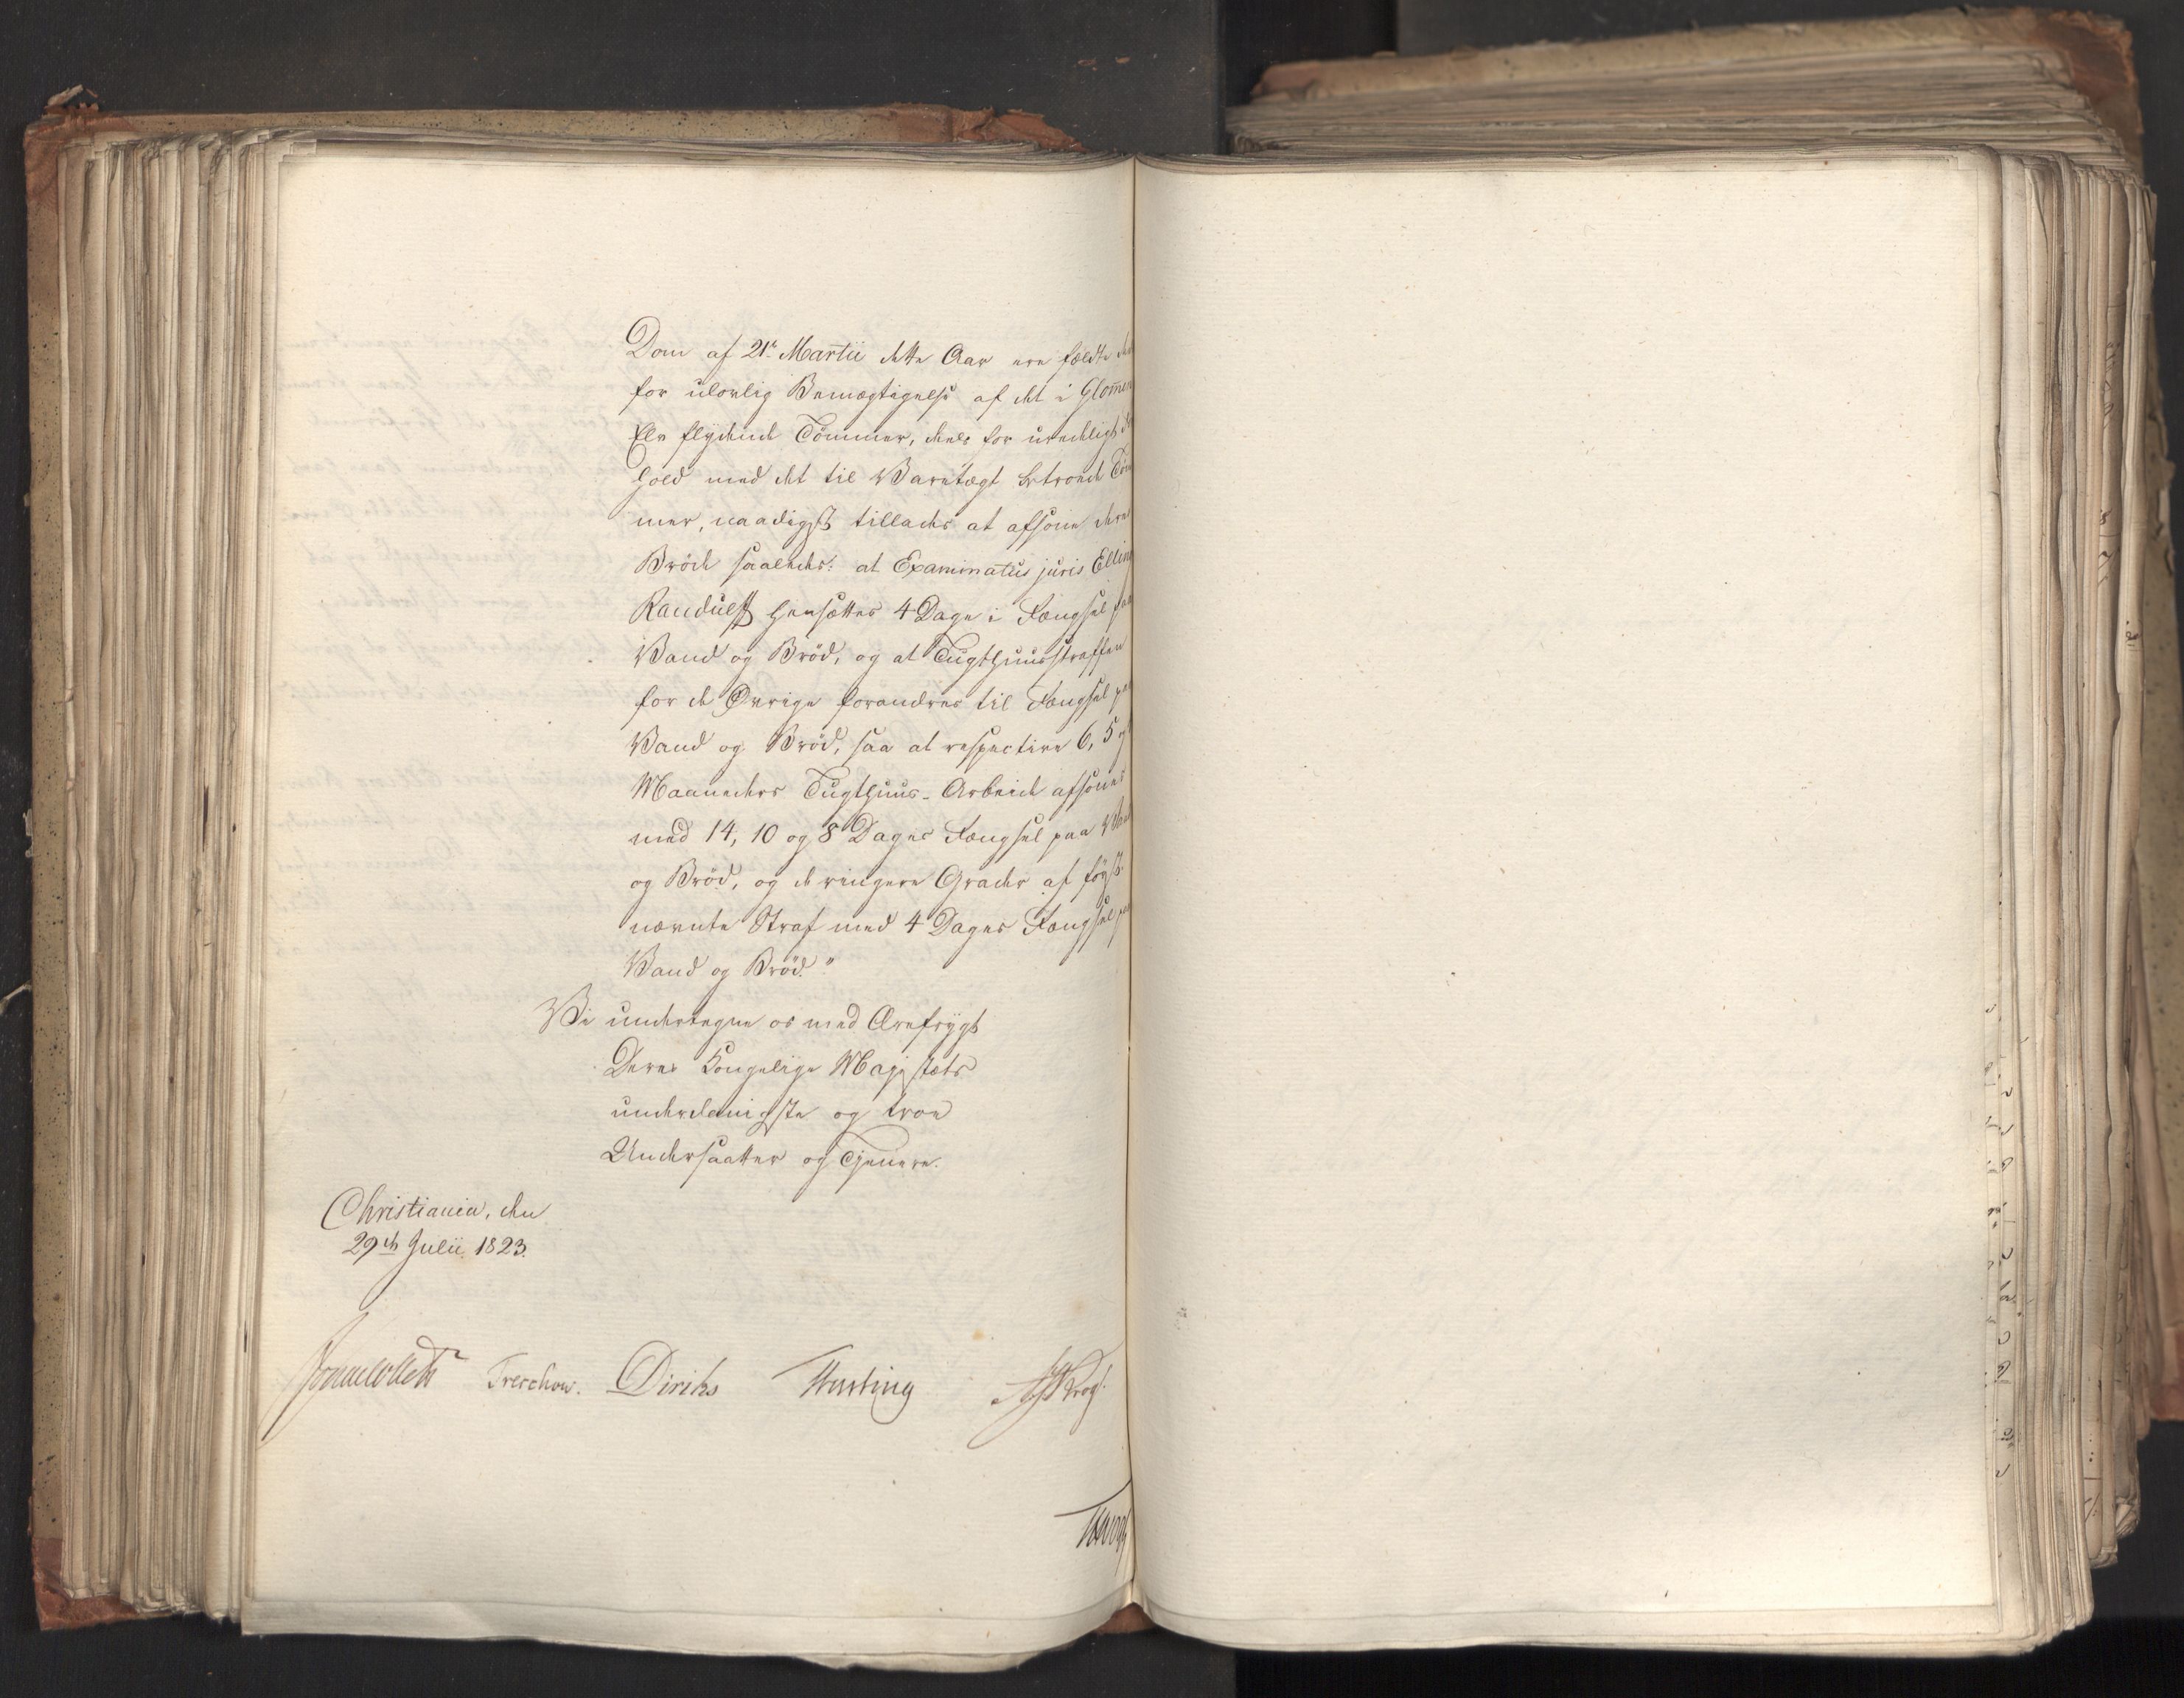 Dom af 21de Martii dette Aar ere fældte
for ulovlig Bemægtigelse af det i Glom̅en
Elv flydende Tömmer, deels for uredeligt
hold med det til Varetægt betroede Töm
mer, naadigst tillades at afsone deres
Bröde saaledes: at Examinatus juris Elling
Randulff hensættes 4 Dage i Fængsel paa
Vand og Bröd, og at Tugthuusstraffen
for de Øvrige forandres til Fængsel paa
Vand og Bröd, saa at respective 6, 5 og
Maaneders Tugthuus-Arbeide afsones
med 14, 10 og 8 Dages Fængsel paa Vand
og Bröd, og de ringere Grader af sidst
nævnte Straf med 4 Dages Fængsel paa
Vand og Bröd."
Vi undertegne os med Ærefrygt
Deres Kongelige Majestæts
underdanigste og troe
Undersaatter og Tjenere.
Christiania, den
29de Julii 1823.
Jonas Collett Treschow. Diriks Fasting Krog